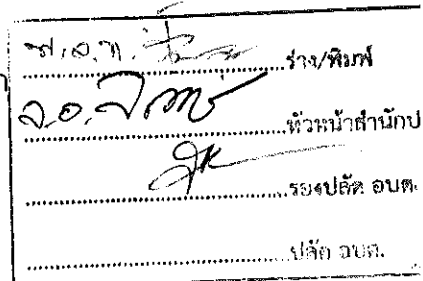 พ.อ.ท. ........................ร่าง/พิมพ์
จ.อ. ........................หัวหน้าสำนักป
........................รองปลัด อบต.
........................ปลัด อบต.